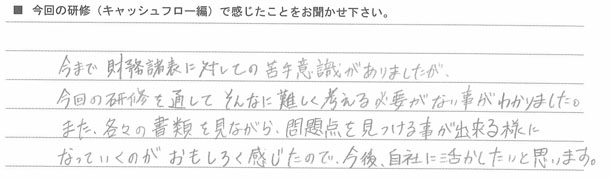 ■ 今回の研修（キャッシュフロー編）で感じたことをお聞かせ下さい。
今まで 財務諸表に対しての苦手意識がありましたが、
今回の研修を通して そんなに難しく考える必要がない事がわかりました。
また、各々の書類を見ながら、問題点を見つける事が出来る様に
なっていくのが おもしろく感じたので、今後、自社に活かしたいと思います。